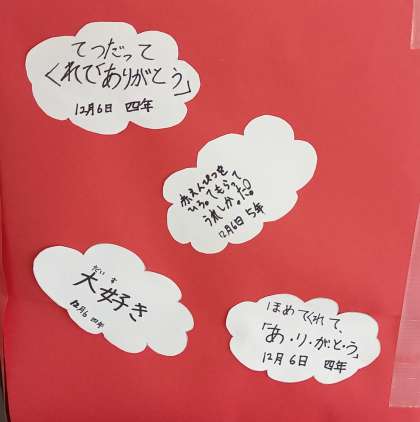 てつだって
くれて「ありがとう」
12月6日 四年
赤えんぴつを
ひろってもらって
うれしかった。
12月6日 5年
だいす
大好き
12月6 四年
ほめてくれて、
「あ・り・が・と・う」
12月6日 四年